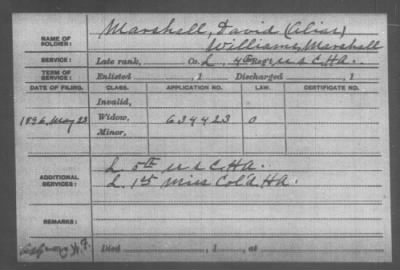 NAME OF SOLDIER: Marshall, David (alias)
Williams, Marshall
SERVICE: Late rank, Co. L, 4th Reg't U S C H A.
TERM OF SERVICE: Enlisted , 1 Discharged , 1
DATE OF FILING. CLASS. APPLICATION NO. LAW. CERTIFICATE NO.
Invalid,
1896, May 23 Widow, 634423 0
Minor,
ADDITIONAL SERVICES: L. 5th U S C H A.
L. 1st Miss Col'd H A.
REMARKS:
Died , 1 , at